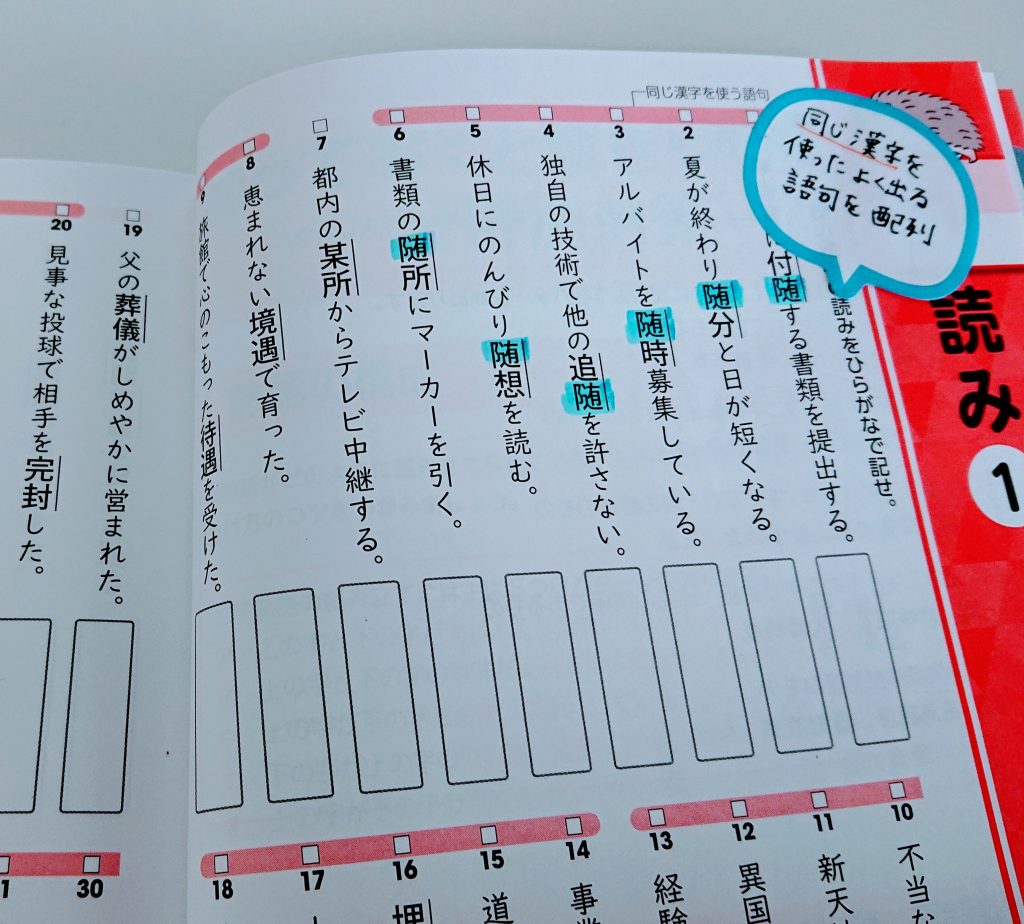 読み
1
同じ漢字を
使ったよく出る
語句を配列
同じ漢字を使う語句
読みをひらがなで記せ。
付随する書類を提出する。
2 夏が終わり随分と日が短くなる。
3 アルバイトを随時募集している。
4 独自の技術で他の追随を許さない。
5 休日にのんびり随想を読む。
6 書類の随所にマーカーを引く。
7 都内の某所からテレビ中継する。
8 恵まれない境遇で育った。
9 旅館で心のこもった待遇を受けた。
10 不当な
11 新天
12 異国
13 経験
14 事業
15 道
16 押
17
18
19 父の葬儀がしめやかに営まれた。
20 見事な投球で相手を完封した。
30